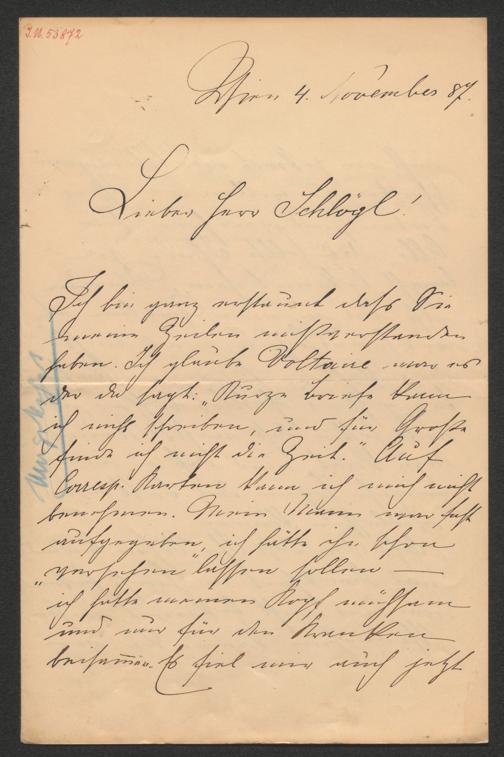 J.N. 53872
Wien 4. November 87.
Lieber Herr Schlögl!
Ich bin ganz erstaunt daß Sie
meine Zeilen mißverstanden
haben. Ich glaube Voltaire war es
der da sagt: „Kurze Briefe kann
ich nicht schreiben, und für Große
finde ich nicht die Zeit." Auf
Corresp. Karten kann ich mich nicht
benehmen. Mein Mann war fast
aufgegeben, ich hätte ihn schon
„versehen" lassen sollen —
ich hatte meinen Kopf mühsam
und nur für den Kranken
beisammen. Es fiel mir auch jetzt